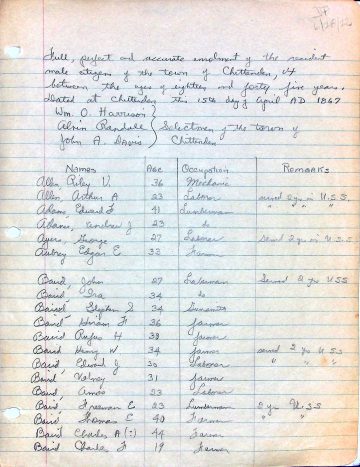 Full, perfect and accurate enrolment of the resident
male citizens of the town of Chittenden, Vt
between the ages of eighteen and forty five years.
Dated at Chittenden this 15th day of April AD. 1867
Wm. O. Harrison
Alvin Randall } Selectmen of the town of
John A. Davis Chittenden
Names Age Occupation Remarks
Allen, Riley V. 36 Mechanic
Allen, Arthur A 23 Laborer served 2 yrs in U.S.S.
Adams, Edward F 41 Lumberman " " "
Adams, Andrew J 23 do
Ayers, George 27 Laborer served 2 yrs in U.S.S.
Aubrey Edgar E 33 Farmer
Baird, John 27 Served 2 yrs USS
Baird, Ira 34 do
Baird, Stephen S 34
Baird Hiram F 36 farmer
Baird Rufus H 38 farmer
Baird Henry W 34 farmer served 2 yrs U.SS
Baird, Edward J 30 Laborer " " "
Baird, Volney 31 farmer
Baird, Amos 23 Laborer
Baird, Freeman E 23 Lumberman 2 yrs U.SS
Baird, Thomas E 40 Farmer " "
Baird Charles A (?) 44 Farmer
Baird Charles F 19 Farmer